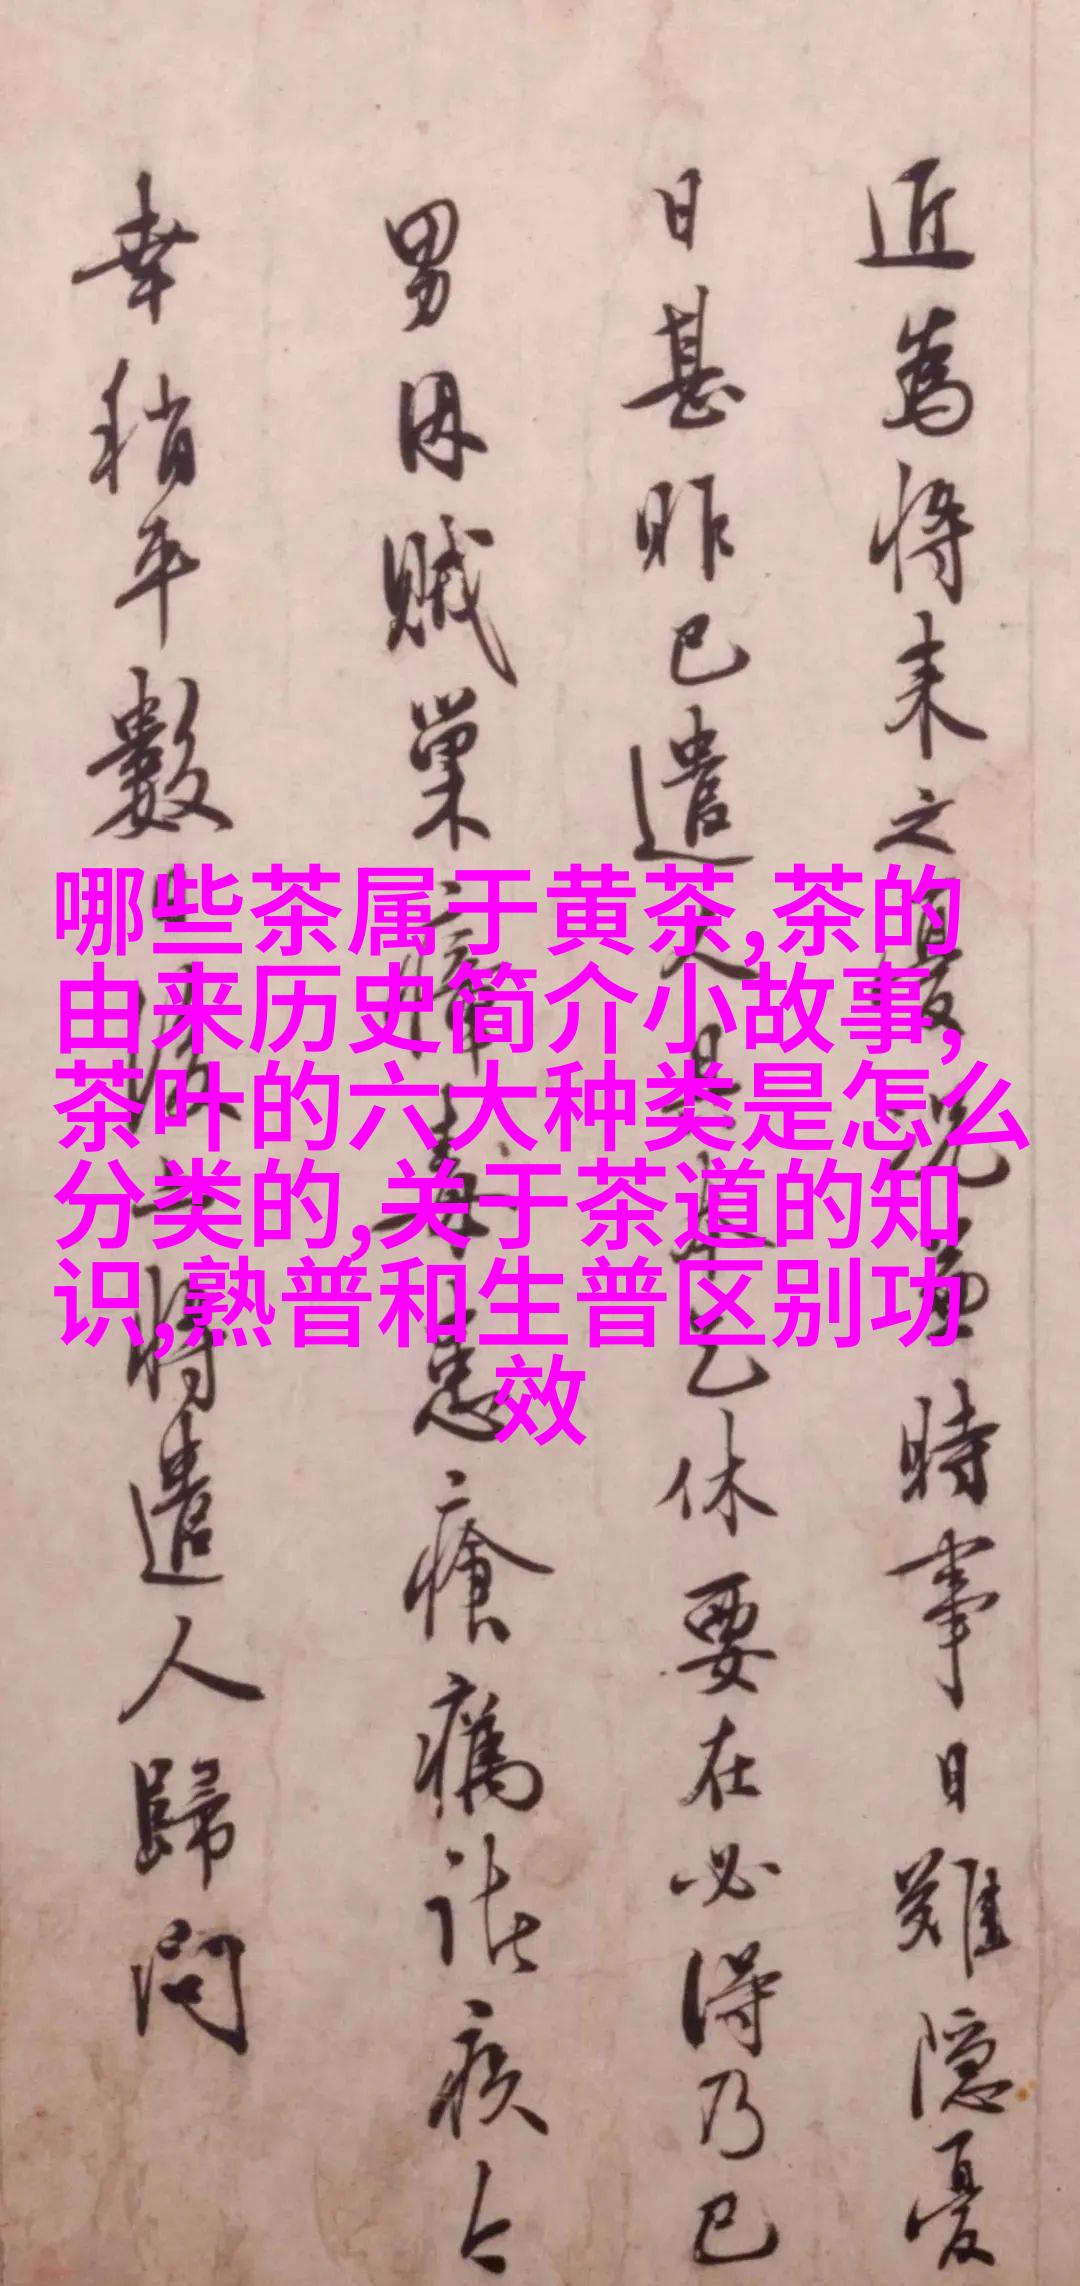 近爲将来之憂况兼時事日難隱憂
日甚昨已遣人具本乞休要在必得乃已
男因賊巢瘴毒患瘡癘諸疾今
幸稍平數日後亦将遣人歸問
哪些茶属于黄茶,茶的
由来历史简介小故事,
茶叶的六大种类是怎么
分类的,关于茶道的知
识,熟普和生普区别功
效